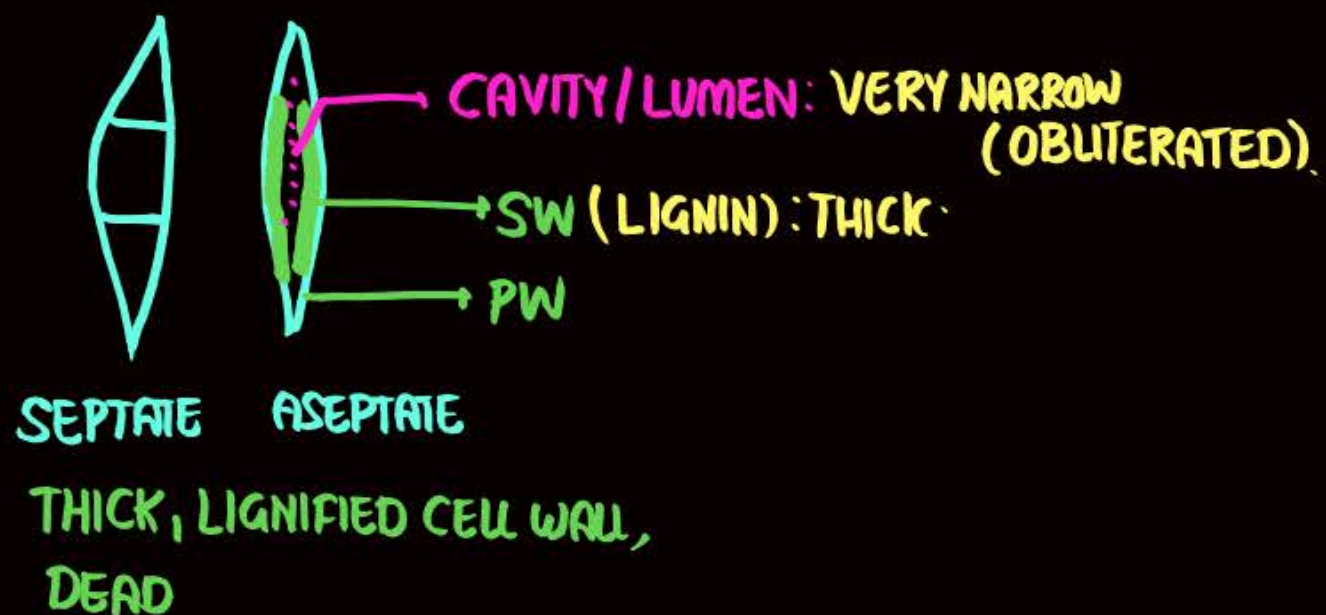 CAVITY/LUMEN: VERY NARROW
(OBLITERATED).
SW (LIGNIN): THICK.
PW
SEPTATE ASEPTATE
THICK, LIGNIFIED CELL WALL,
DEAD